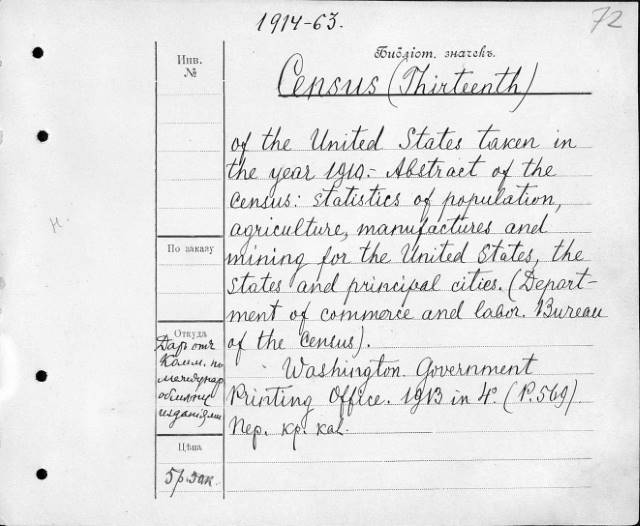 1914-63.
72
Инв.
№
Библіот. значекъ.
Census (Thirteenth)
of the United States taken in
the year 1910.- Abstract of the
census: statistics of population,
agriculture, manufactures and
mining for the United States, the
states and principal cities. (Depart-
ment of commerce and labor. Bureau
of the census).
Washington. Government
Printing Office. 1913 in 4°. (P. 569).
Пер. кр. кал.
По заказу
Откуда
Даръ отъ
Комм. по
междунар
обмѣну
изданіями
Цѣна
5 р.
н.